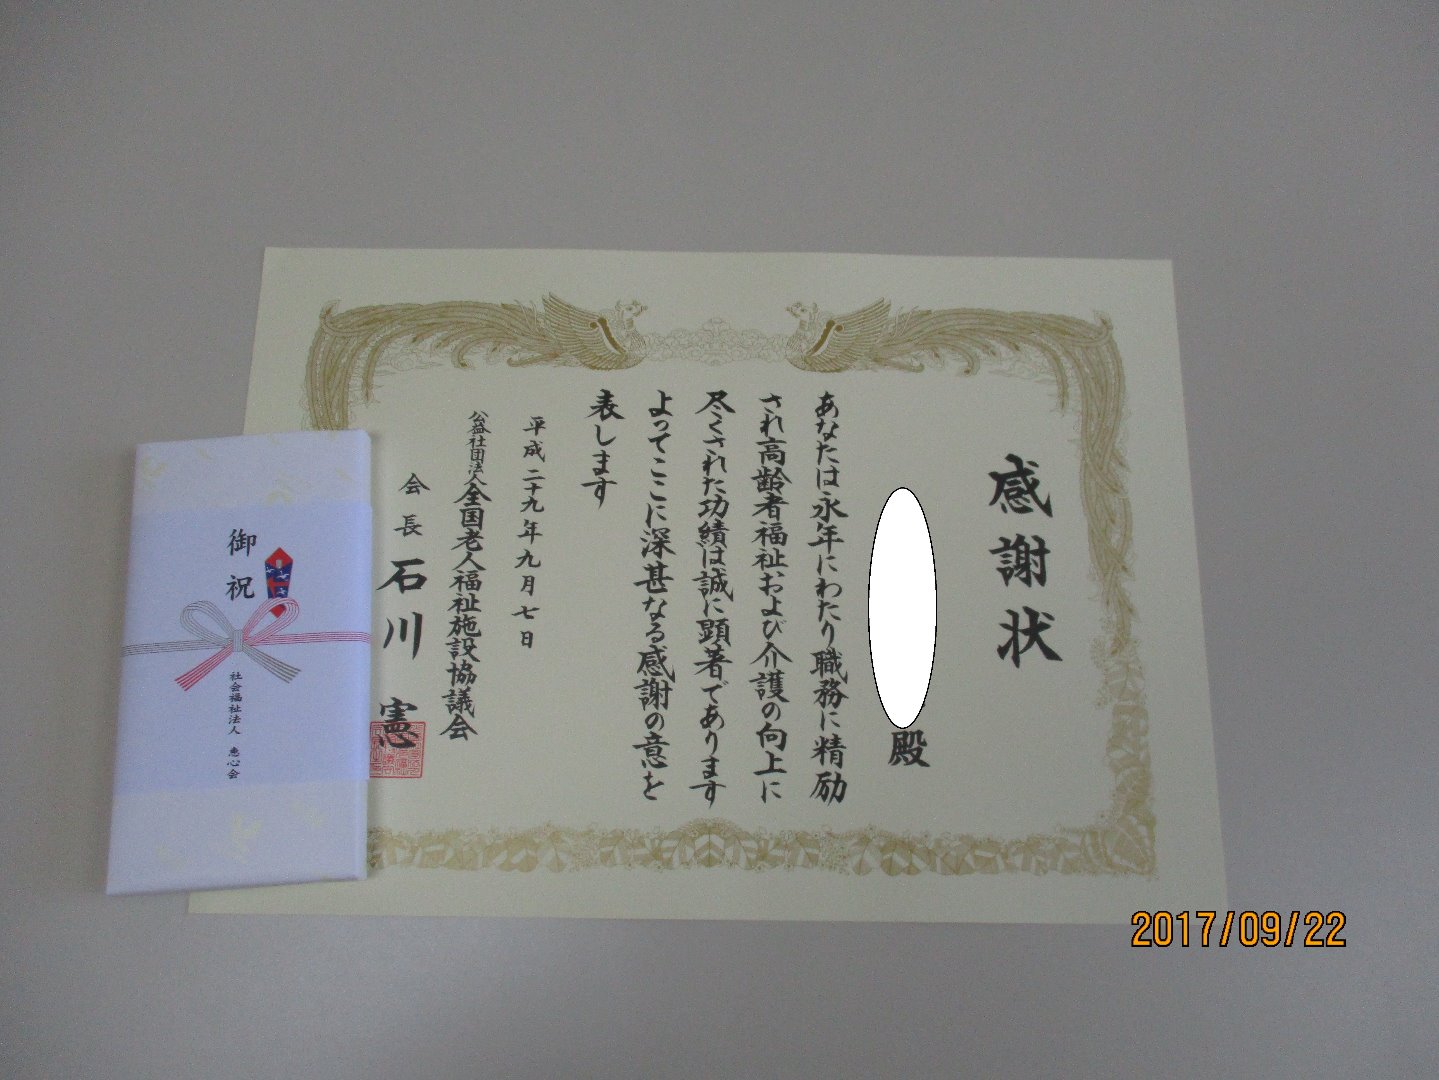 感謝状
殿
あなたは永年にわたり職務に精励
され高齢者福祉および介護の向上に
尽くされた功績は誠に顕著であります
よってここに深甚なる感謝の意を
表します
平成二十九年九月七日
公益社団法人全国老人福祉施設協議会
会長 石川 憲
御祝
社会福祉法人 恵心会
2017/09/22